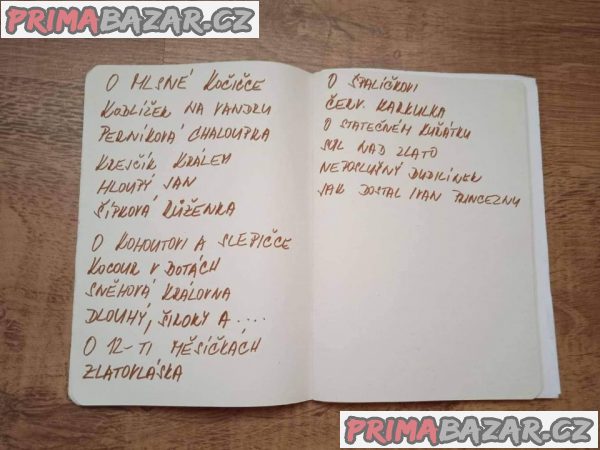 PRIMABAZAR.CZ
O MLSNÉ KOČIČCE
KOBLÍŽEK NA VANDRU
PERNÍKOVÁ CHALOUPKA
KREJČÍK KRÁLEM
HLOUPÝ JAN
ŠÍPKOVÁ RŮŽENKA
O KOHOUTOVI A SLEPIČCE
KOCOUR V BOTÁCH
SNĚHOVÁ KRÁLOVNA
DLOUHÝ, ŠIROKÝ A ....
O 12-TI MĚSÍČKÁCH
ZLATOVLÁSKA
O ŠPALÍČKOVI
ČERV. KARKULKA
O STATEČNÉM KUŘÁTKU
SŮL NAD ZLATO
NEPOSLUŠNÝ BUDULÍNEK
JAK DOSTAL IVAN PRINCEZNU
PRIMABAZAR.CZ
PRIMABAZAR.CZ